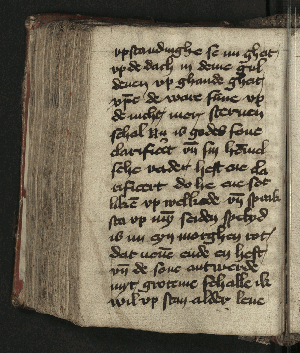 vpstandinghe se nu gheit
vp de dach in deme gul
denen vp ghande gheit
vp de ware sune vp
de nicht mer steruen
schal Nu is godes sone
clarificert vn sin hemel
sche vader heft ene cla
rificert do he ene set
leken vp weckede vn sprak
sta vp myn seiden spel vn
is nu eyn morghen rot
dat nene ende en heft
vn de sone antwerde
myt groteme schalle ik
wil vp stan alder leue